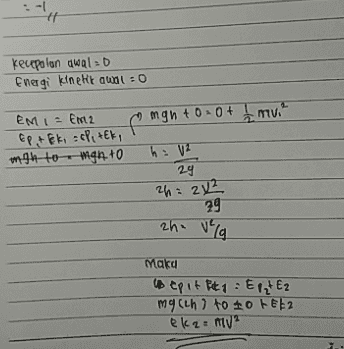 = -1 //
Kecepatan awal = 0
Energi kinetik awal = 0
EM1 = EM2
EP1 + EK1 = EP1 + EK1
mgh to = mgh to
mgh + 0 = 0 + 1/2 mv1²
h = V²/2g
2h = 2V²/2g
2h = V²/g
maka
EP1 + EK1 = EP2 + E2
mg(2h) + 0 = 0 + EK2
EK2 = mv²